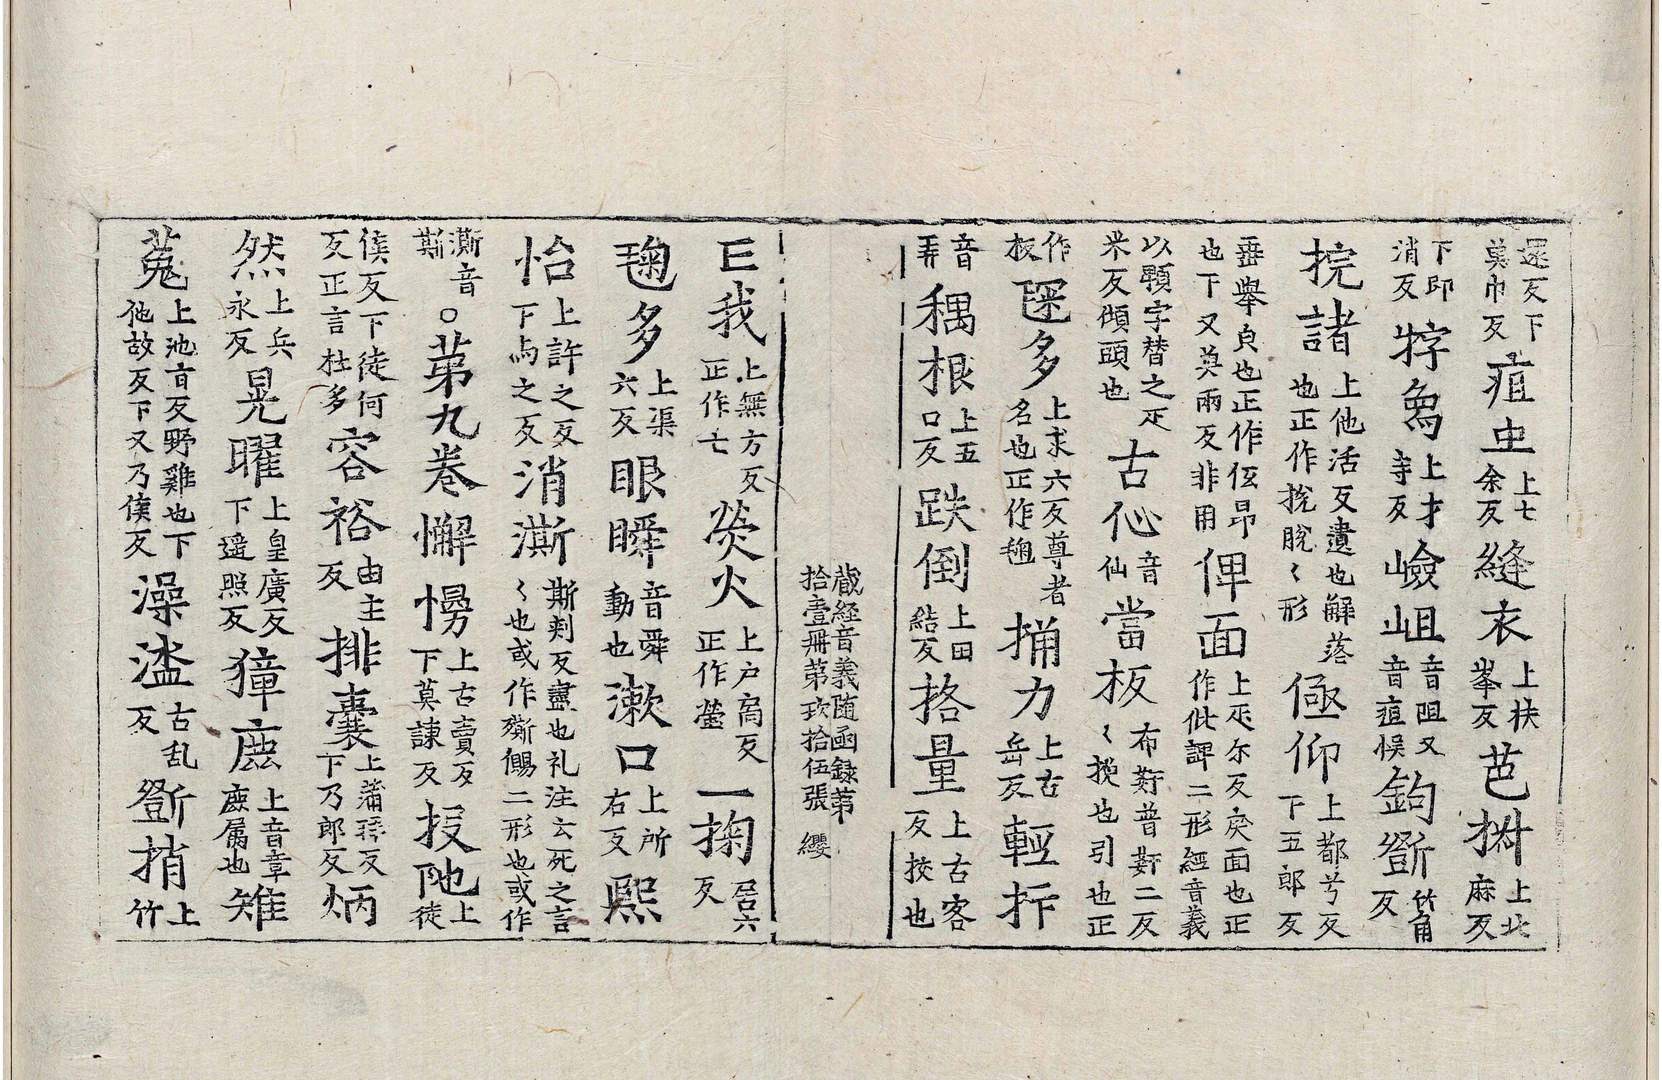 還反下莫巾反疽虫上七余反縫衣上扶峯反芭㭰上北麻反
下即消反牸㲋上才寺反嶮岨音阻又音疽悮鉤㔁竹角反
捖諸上他活反遺也解落也正作挩脫〻形㥛仰上都兮反下五郎反
垂舉皃也正作伭昂也下又莫兩反非用俾面上疋尔反戾面也正作仳諀二形經音義
以顊字替之疋米反傾頭也古仚音仙當板布蔪普蔪二反〻挽也引也正
作板䞼多上求六反尊者名也正作䞼捔力上古岳反輕扸
音弄耦根上五口反跌倒上田結反挌量上古客反挍也
藏経音義随函録第拾壹冊第玖拾伍張 纓
亾我上無方反正作亡熒火上户扃反正作螢一掬居六反
䞼多上渠六反眼瞬音舜動也漱口上所右反熙
怡上許之反下与之反消澌斯刾反盡也礼注云死之言〻也或作㒋賜二形也或作
澌音斯○苐九卷懈㥃上古賣反下莫諫反𭠘陁上徒
侯反下徒何反正言杜多容裕由主反排囊上蒲拜反下乃郎反炳
然上兵永反晃曜上皇廣反下遥照反獐䴢上音章䴢属也雉
菟上池旨反野雞也下他故反下又乃侯反澡盥古乱反㔁捎上竹